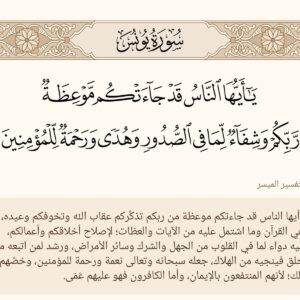 سُورَةُ يُونُسَ
يَٰٓأَيُّهَا ٱلنَّاسُ قَدۡ جَآءَتۡكُم مَّوۡعِظَةٞ
رَّبِّكُمۡ وَشِفَآءٞ لِّمَا فِي ٱلصُّدُورِ وَهُدٗى وَرَحۡمَةٞ لِّلۡمُؤۡمِنِينَ
فسير الميسر
أيها الناس قد جاءتكم موعظة من ربكم تذكّركم عقاب الله وتخوفكم وعيده،
ي القرآن وما اشتمل عليه من الآيات والعظات؛ لإصلاح أخلاقكم وأعمالكم،
يه دواء لما في القلوب من الجهل والشرك وسائر الأمراض، ورشد لمن اتبعه م
خلق فينجيه من الهلاك، جعله سبحانه وتعالى نعمة ورحمة للمؤمنين، وخصّهم
لك؛ لأنهم المنتفعون بالإيمان، وأما الكافرون فهو عليهم عَمًى.